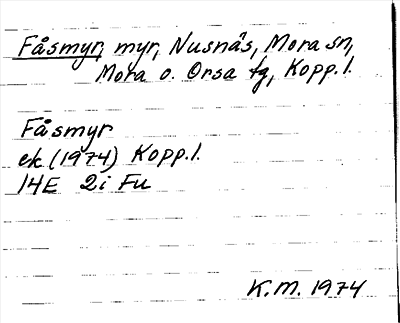 Fåsmyr, myr, Nusnäs, Mora sn,
Mora o. Orsa tg, Kopp.l.
Fåsmyr
ek (1974) Kopp.l.
14E 2i Fu
K.M. 1974